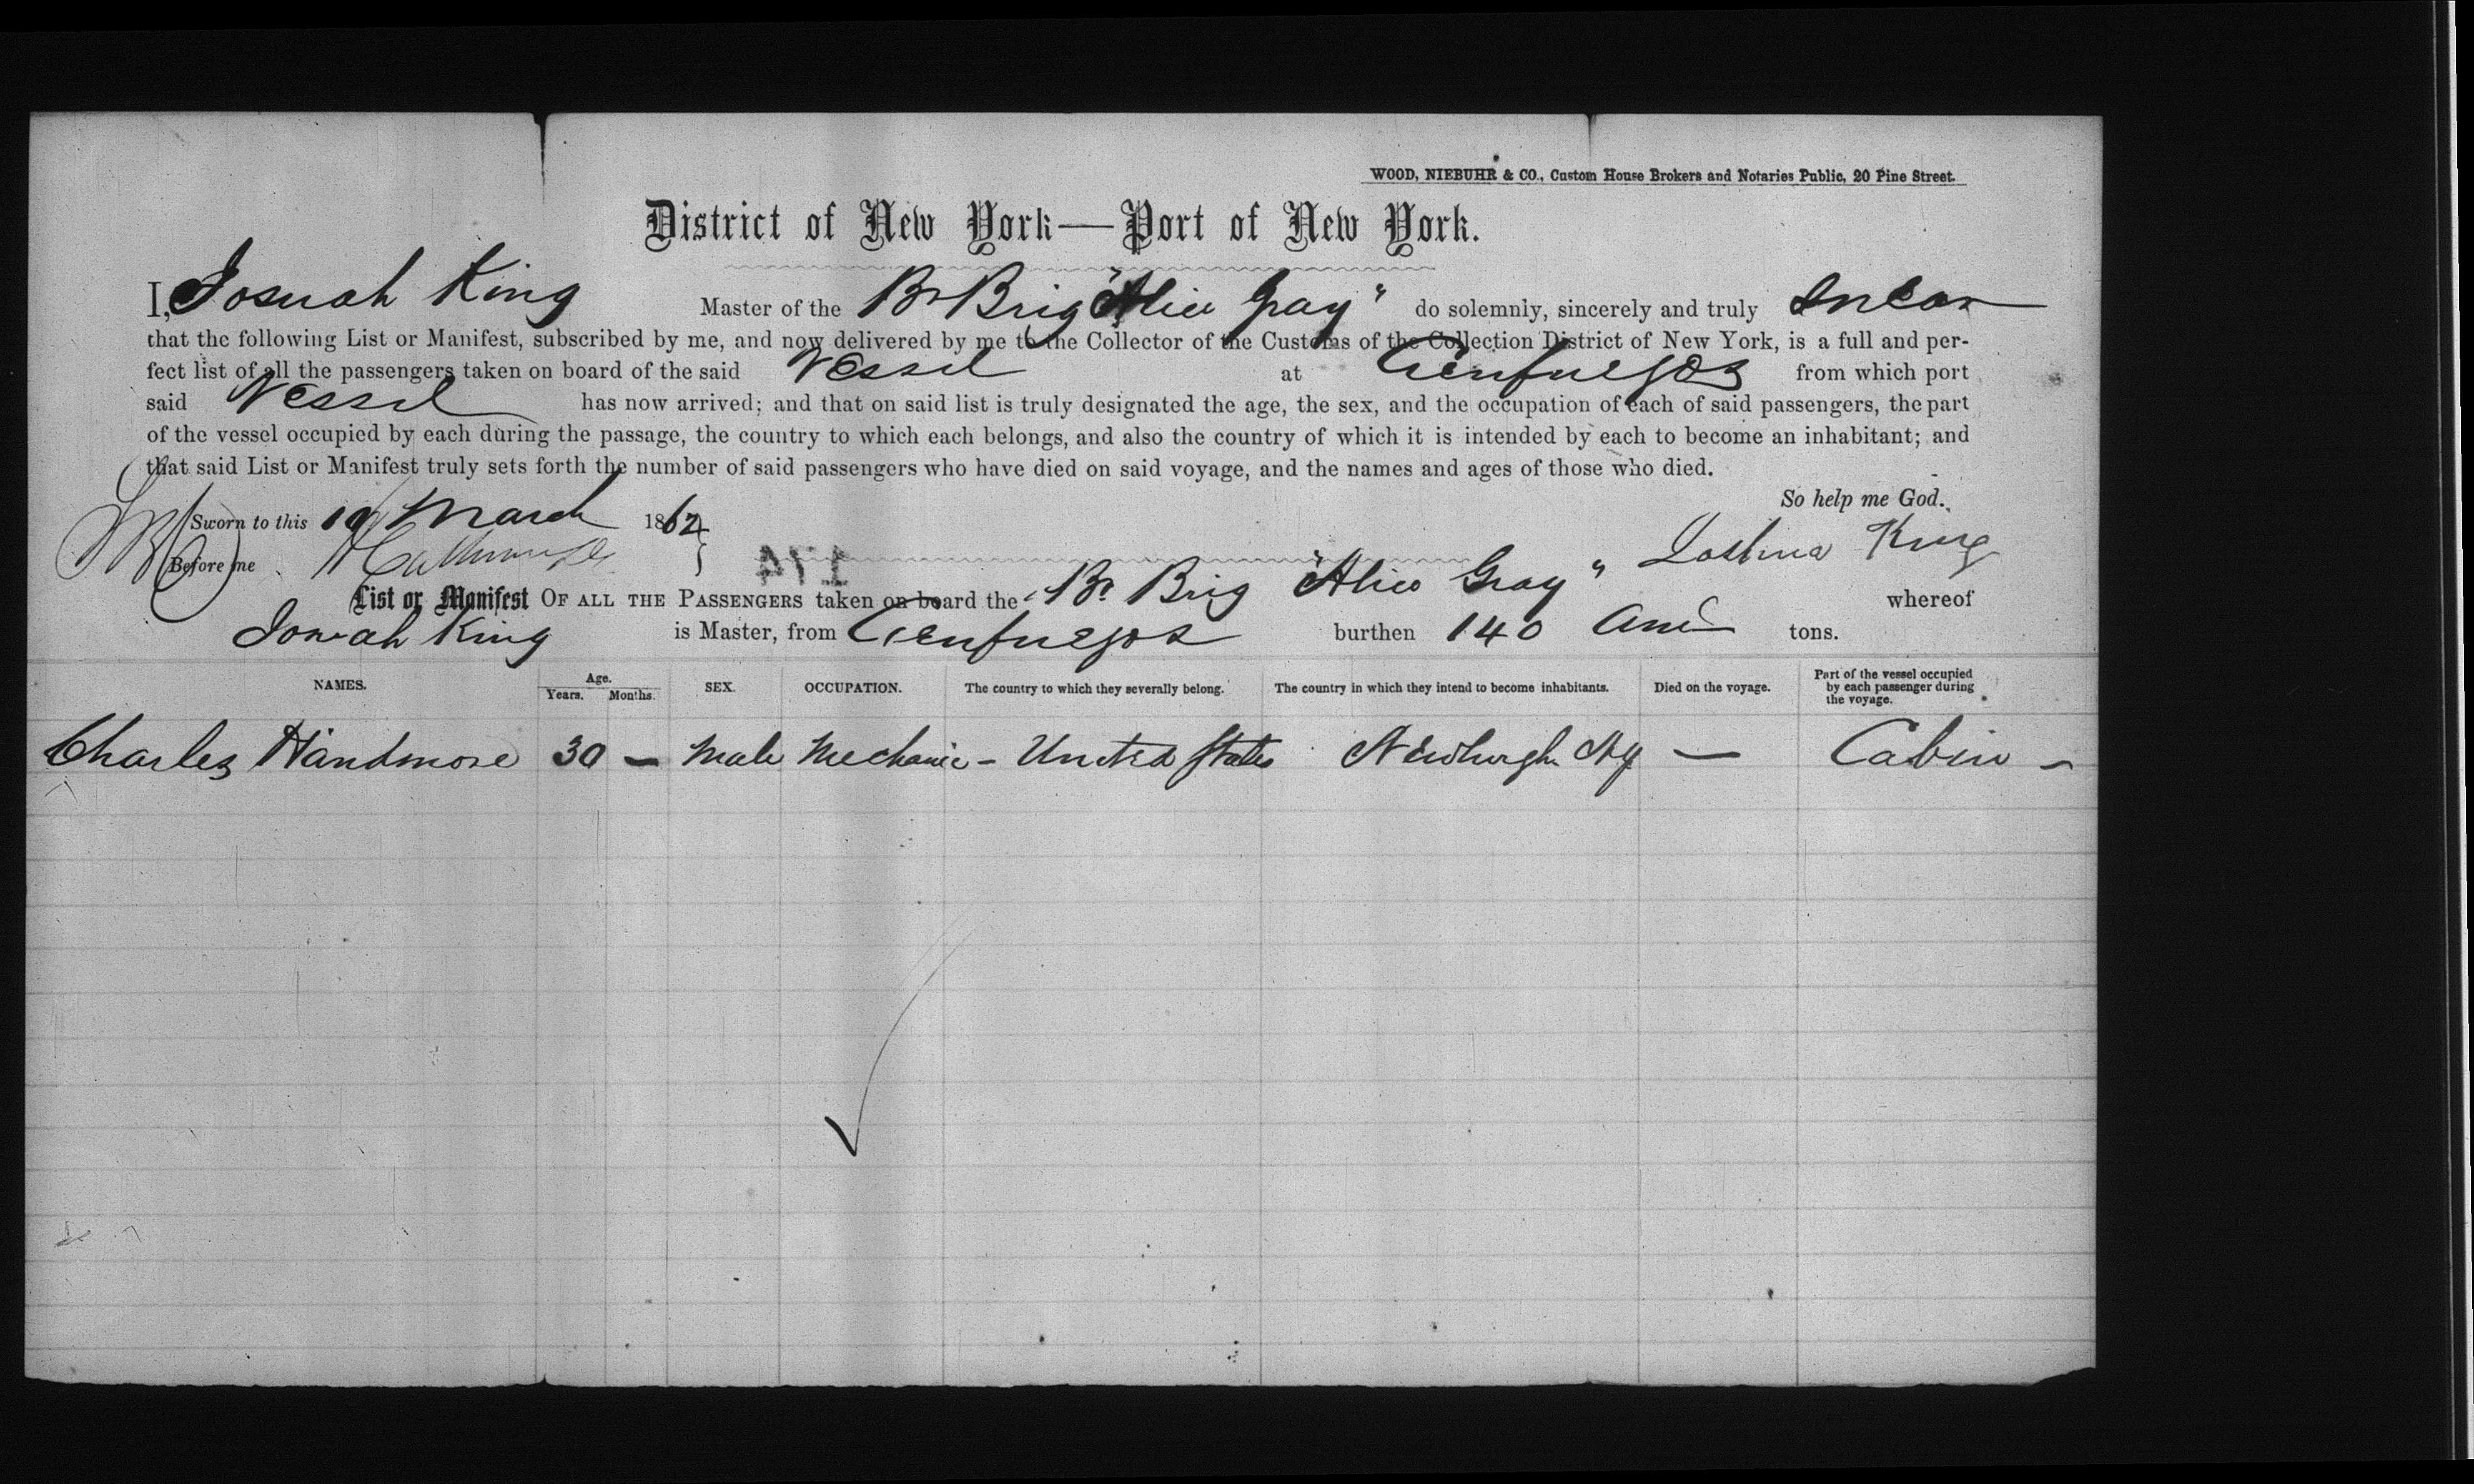 WOOD, NIEBUHR & CO., Custom House Brokers and Notaries Public, 20 Pine Street.
District of New York—Port of New York.
I, Josuah King Master of the Br Brig "Alice Gray" do solemnly, sincerely and truly Swear
that the following List or Manifest, subscribed by me, and now delivered by me to the Collector of the Customs of the Collection District of New York, is a full and per-
fect list of all the passengers taken on board of the said Vessel at Cienfuegos from which port
said Vessel has now arrived; and that on said list is truly designated the age, the sex, and the occupation of each of said passengers, the part
of the vessel occupied by each during the passage, the country to which each belongs, and also the country of which it is intended by each to become an inhabitant; and
that said List or Manifest truly sets forth the number of said passengers who have died on said voyage, and the names and ages of those who died.
So help me God.
Sworn to this 19 March 1862
Joshua King
Before me
174
List or Manifest OF ALL THE PASSENGERS taken on board the Br Brig "Alice Gray" whereof
Josuah King is Master, from Cienfuegos burthen 140 tons.
NAMES. Age. Years. Months. SEX. OCCUPATION. The country to which they severally belong. The country in which they intend to become inhabitants. Died on the voyage. Part of the vessel occupied by each passenger during the voyage.
Charles Handmore 30 — Male Mechanic – United States Newburgh NY — Cabin –